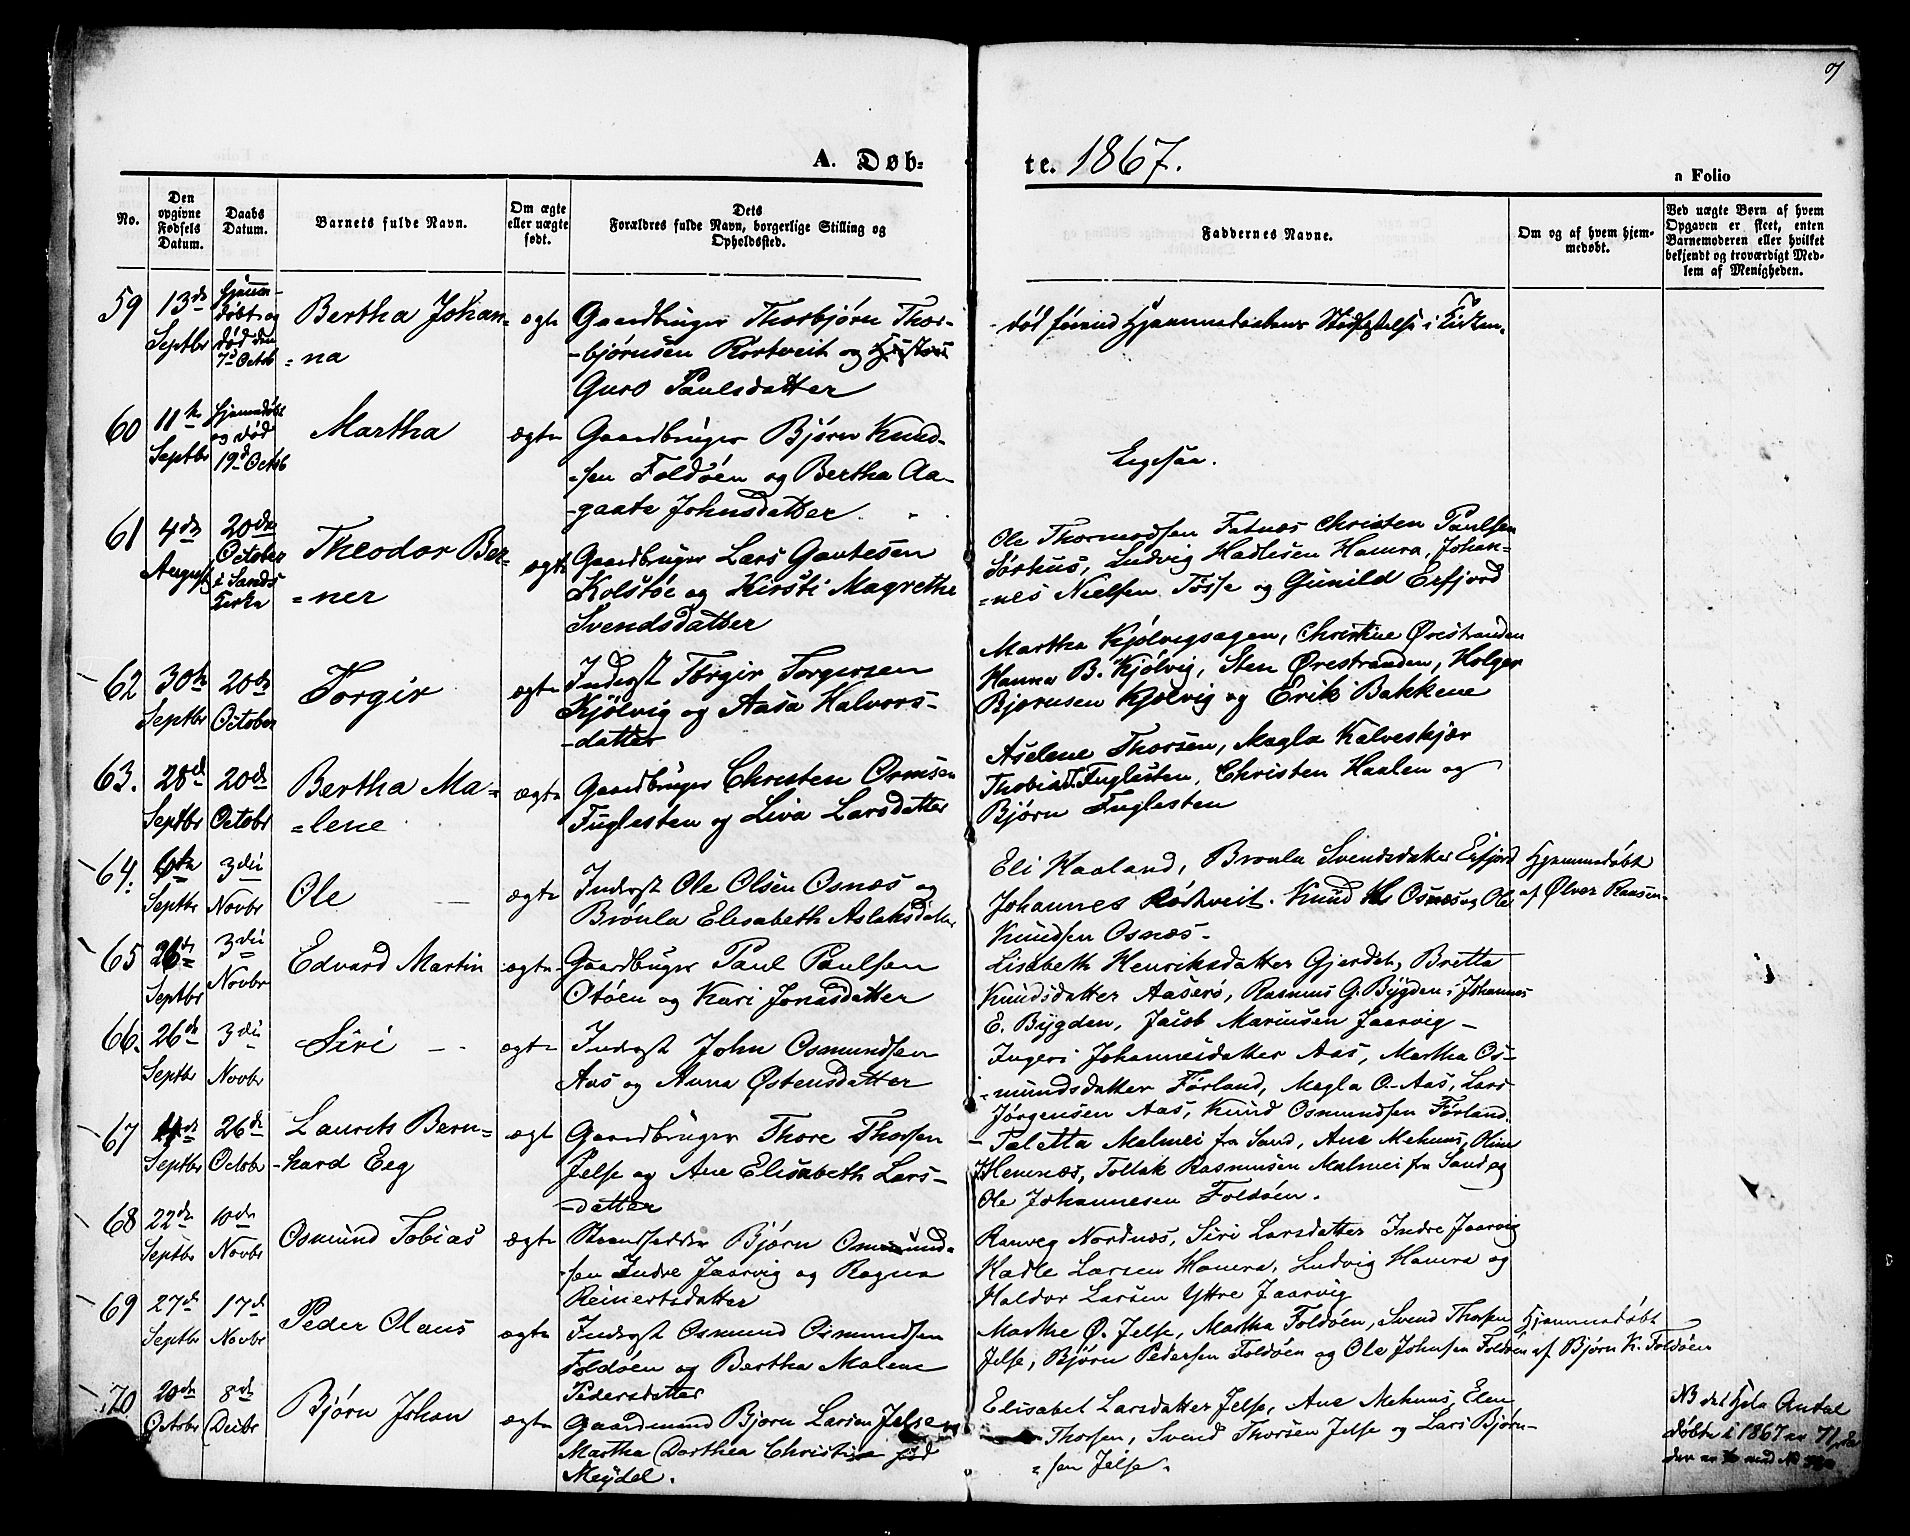 7
A. Døbte. 1867.
a Folio
No.
Den opgivne Fødsels Datum.
Daabs Datum.
Barnets fulde Navn.
Om ægte eller uægte født.
Dets Forældres fulde Navn, borgerlige Stilling og Opholdssted.
Faddernes Navne.
Om og af hvem hjemmedøbt.
Ved uægte Børn af hvem Opgaven er skeet, enten Barnemoderen eller hvilket bekjendt og troværdigt Medlem af Menigheden.
59 13de Septbr
døbt og død den 7de Octob
Bertha Johan=
=na
ægte
Gaardbruger Thorbjørn Thor-
-bjørnsen Rørtveit og
Guro Paulsdatter
død førend Hjemmedaabens Stadfæstelse i Kirken.
60 11te Septbr
Hjemmedøbt og død 19de Octob
Martha
ægte
Gaardbruger Bjørn Knud-
-sen Foldøen og Bertha Aa-
-gaate Johnsdatter.
Ligesaa.
61 4de August
20de October i Sands Kirke
Theodor Ber-
=ner
ægte
Gaardbruger Lars Gautesen
Kolstøe og Kirsti Magrethe
Svendsdatter
Ole Thormodsen Fatnæs Christen Paulsen
Sørhus, Ludvig Hadlesen Hamra, Johan-
=nes Nielsen Tøsse og Gunild Erfjord
62 30te Septbr
20de October
Torgir
ægte
Inderst Torgir Torgersen
Kjølvig og Aasa Halvors-
-datter
Martha Kjølvigsagen, Christine Ørestranden
Hanna B. Kjølvig, Sten Ørestranden, Holger
Bjørnsen Kjølvig og Erik Bakkene
63. 28de Septbr
20de Octobr
Bertha Ma=
=lene
ægte
Gaardbruger Christen Ormsen
Fuglesten og Liva Larsdatter
Aselene Thorsen, Magla Kalveskjær
Thobias Fuglesten, Christen Haalen og
Bjørn Fuglesten
64. 6te Septbr
3die Novbr
Ole
ægte
Inderst Ole Olsen Osnæs og
Brønla Elisabeth Aslaksdatter
Eli Haaland, Brønla Svendsdatter Erfjord
Johannes Røthveit. Knud Osnæs og Ole
Knudsen Osnæs.
Hjemmedøbt
af Ølver Ransen
65 26de Septbr
3die Novbr
Edvard Martin
ægte
Gaardbruger Paul Paulsen
Otøen og Kari Jonasdatter
Lisabeth Henriksdatter Gjerdet, Bretta
Knudsdatter Aaserø, Rasmus G. Bygden, Johannes
E. Bygden, Jacob Mariusen Jaarvig
66. 26de Septbr
3die Novbr
Siri
ægte
Inderst John Osmundsen
Aas og Anna Østensdatter
Ingeri Johannesdatter Aas, Martha Os-
-mundsdatter Førland, Magla O. Aas, Lars
Jørgensen Aas, Knud Osmundsen Førland.
67 Septbr
26de Octobr
Laurits Bern-
-hard Eeg
ægte
Gaardbruger Thore Thorsen
Jelse og Ane Elisabeth Lars-
-datter
Taletta Malmei fra Sand, Ane Mehuus, Oline
Hemnæs, Tollak Rasmusen Malmei fra Sand og
Ole Johannesen Foldøen.
68 22de Septbr
10de Novbr
Osmund Tobias
ægte
Strandsidder Bjørn Osmund-
-sen Indre Jaarvig og Ragna
Reinertsdatter
Ranveg Nordnæs, Siri Larsdatter Indre Jaarvig
Hadle Larsen Hamra, Ludvig Hamra og
Haldor Larsen Yttre Jaarvig
69 27de Septbr
17de Novbr
Peder Olaus
ægte
Inderst Osmund Osmundsen
Foldøen og Bertha Malene
Pedersdatter
Marthe Ø. Jelse, Martha Foldøen, Svend Thorsen
Jelse, Bjørn Pedersen Foldøen og Ole Johnsen Foldøen
Hjemmedøbt
af Bjørn K. Foldøen
70 20de Octobr
8de Decbr
Bjørn Johan
ægte
Gaardmand Bjørn Larsen Jelse
Martha Dorthea Christine født
Meydel.
Elisabet Larsdatter Jelse, Ane Mehuus, Elen
Thorsen, Svend Thorsen Jelse og Lars Bjørn-
=sen Jelse.
NB det hele Antal
døbte i 1867 er 71